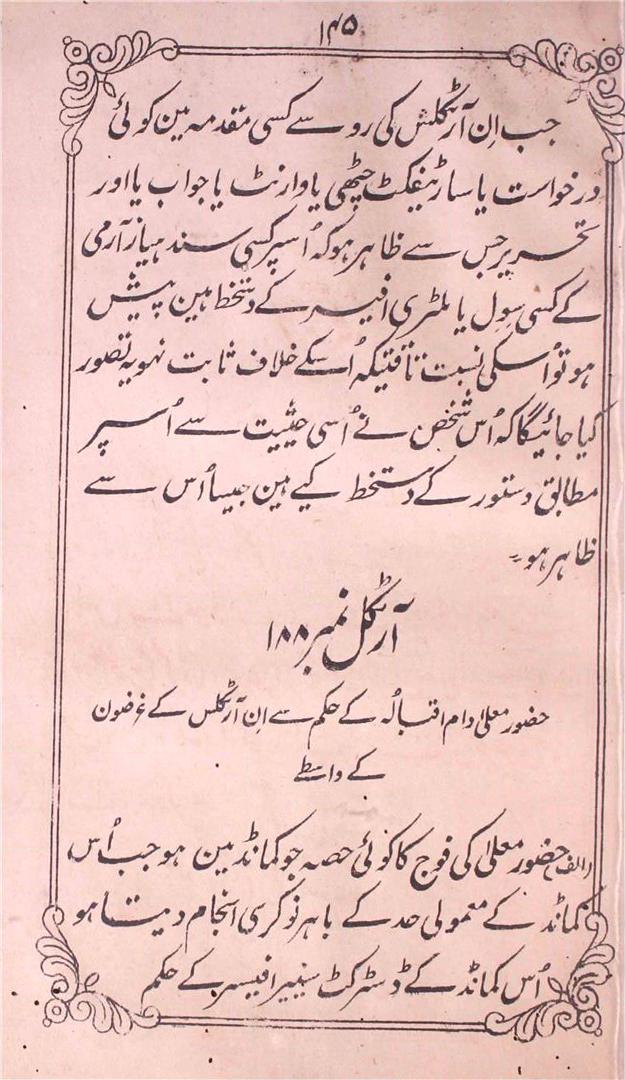 ۱۴۵
جب اِن آرٹکلس کی رو سے کسی مقدمہ مین کوئی
درخواست یا سارٹیفکٹ چٹھی یا وارنٹ یا جواب یا اور
تحریر جس سے ظاہر ہو کہ اُسپر کسی سند ہیاز آرمی
کے کسی سِول یا ملٹری افیسر کے دستخط ہین پیش
ہو تو اُسکی نسبت تاوقتیکہ اُسکے خلاف ثابت نہو یہ تصور
کیا جائیگا کہ اُس شخص نے اُسی حیثیت سے اُسپر
مطابق دستور کے دستخط کیے ہین جیسا اُس سے
ظاہر ہو۔
آرٹکل نمبر ۱۸۸
حضور معلیٰ دام اقبالہُ کے حکم سے اِن آرٹکلس کے غرضون
کے واسطے
(الف) حضور معلیٰ کی فوج کا کوئی حصہ جو کمانڈ مین ہو جب اُس
کمانڈ کے معمولی حد کے باہر نوکری انجام دیتا ہو
اُس کمانڈ کے ڈسٹرکٹ سنییر افیسر کے حکم